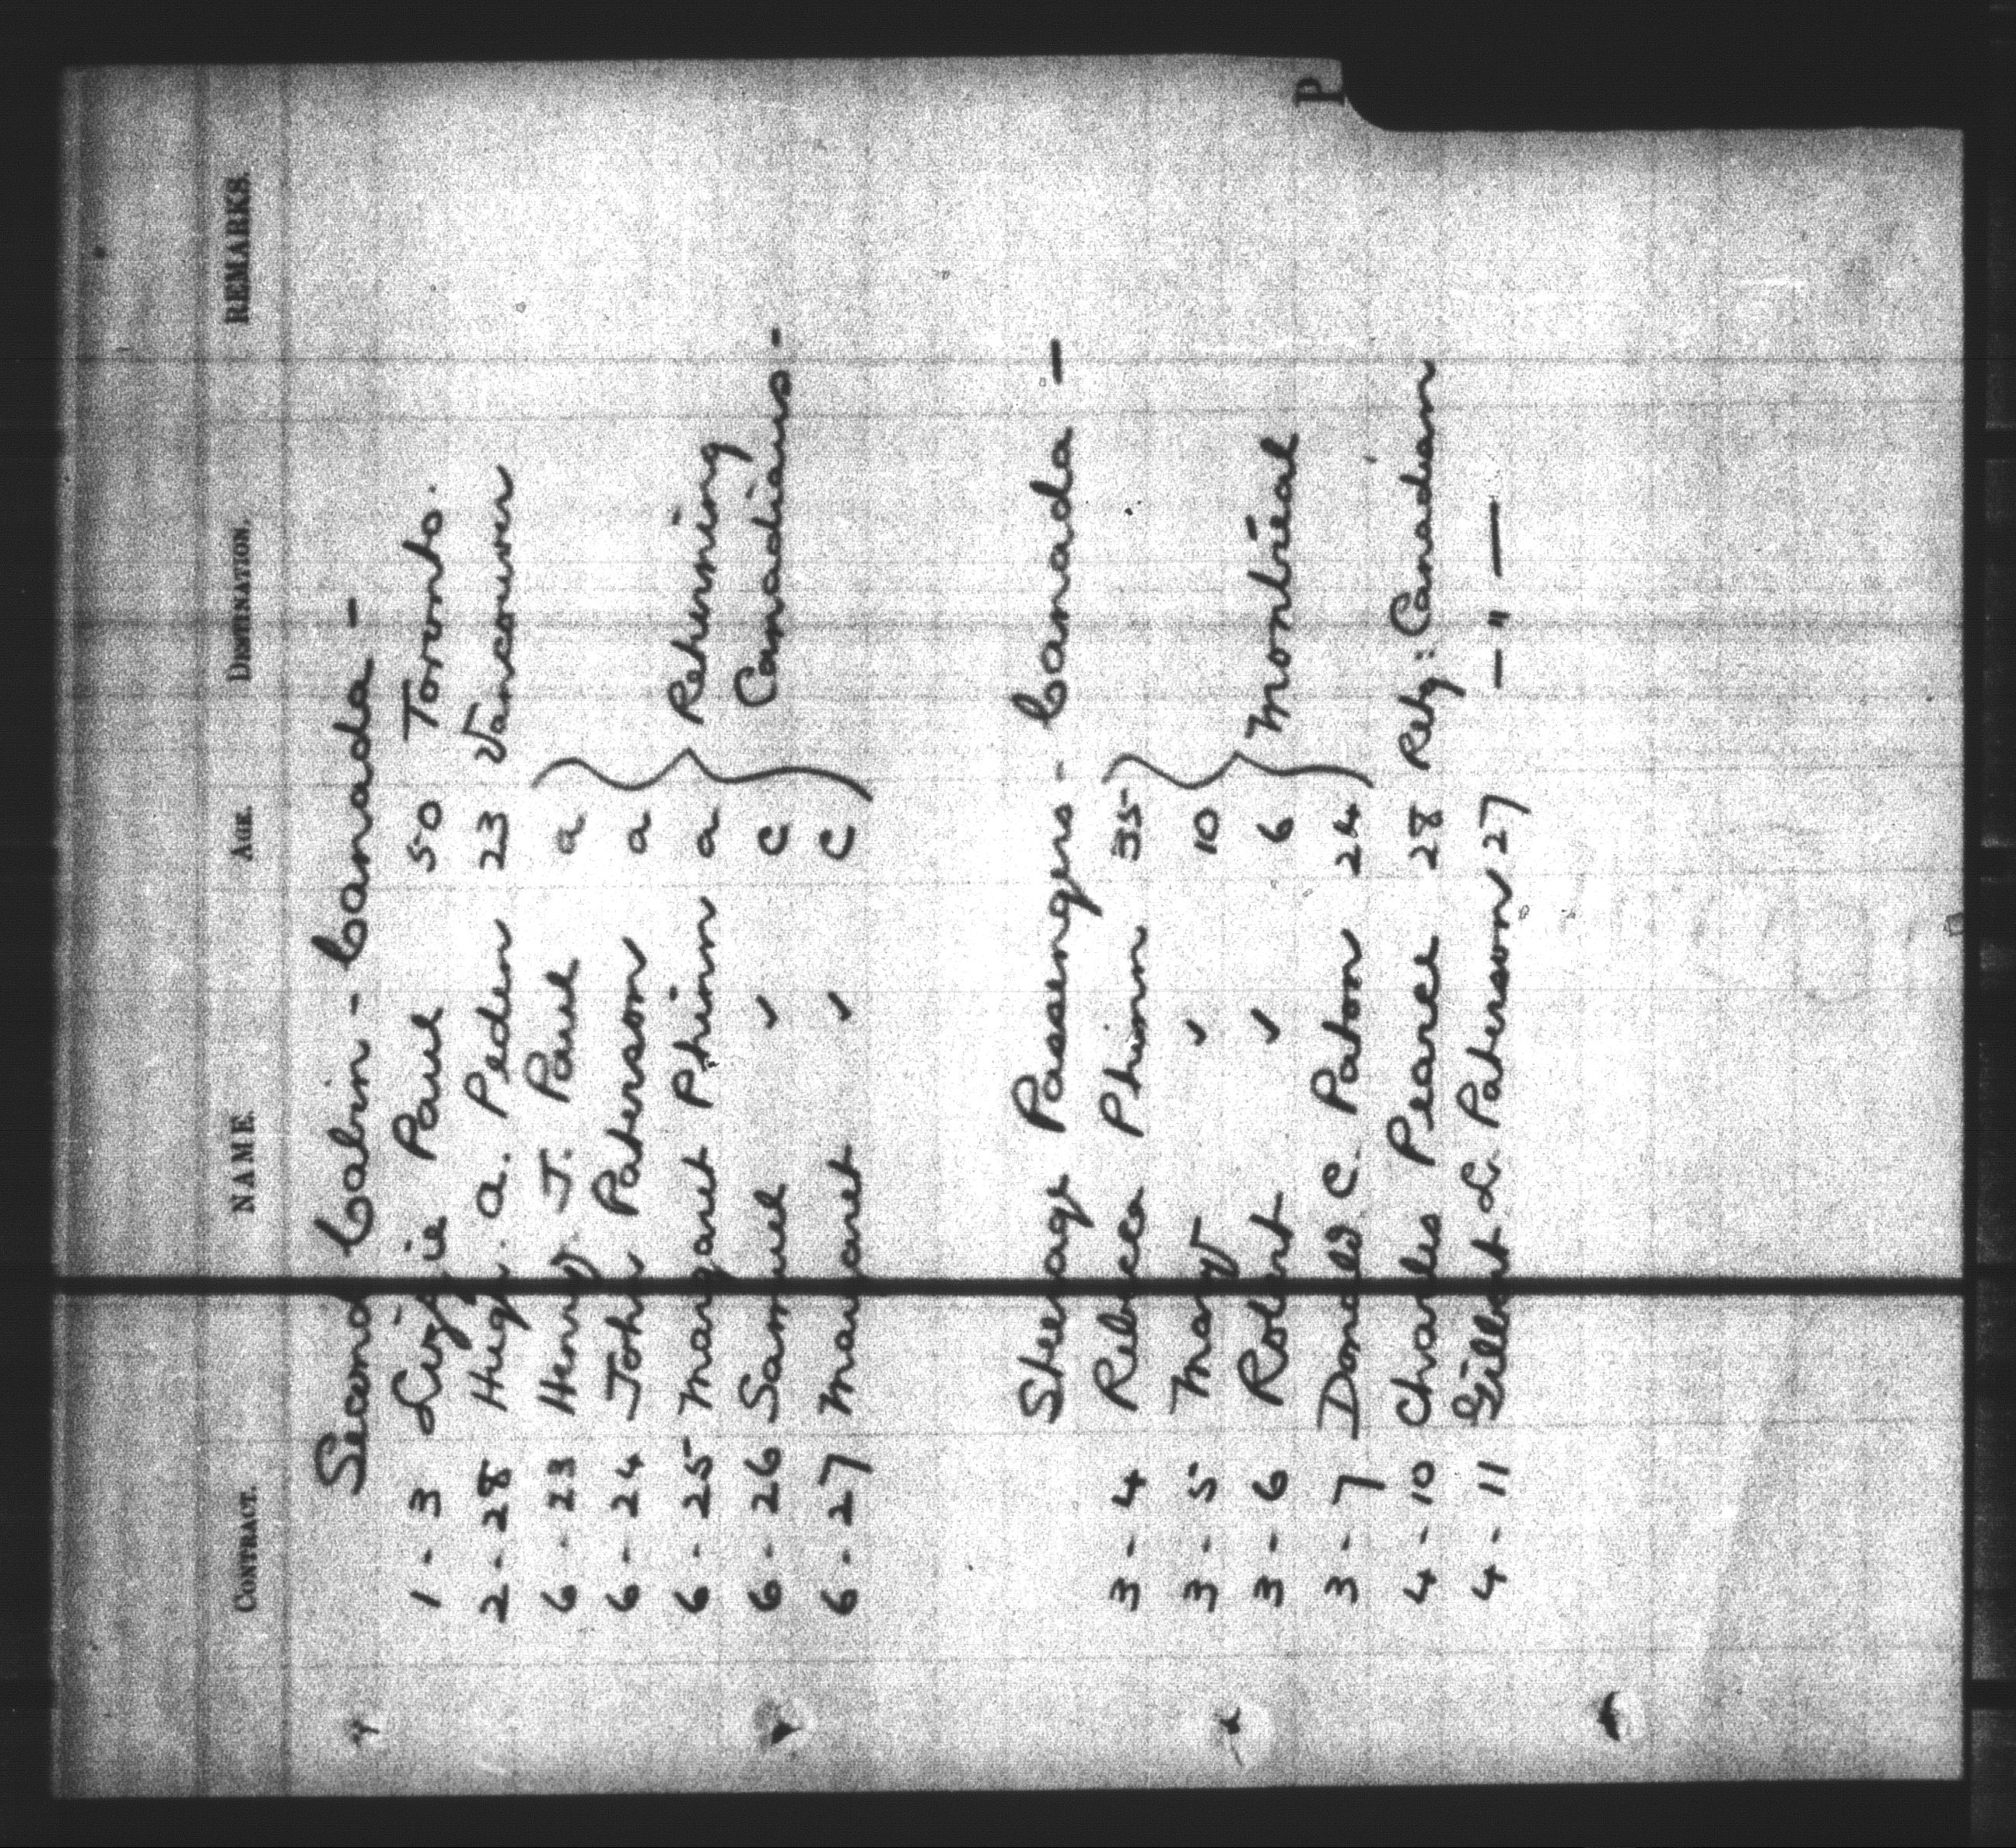 P
CONTRACT. NAME. AGE. DESTINATION. REMARKS.
Second Cabin - Canada -
1 - 3 Lizzie Paul 50 Toronto.
2 - 28 Hugh A. Peden 23 Vancouver
6 - 23 Henry J. Paul a
6 - 24 John Paterson a
6 - 25 Margaret Phinn a Returning
6 - 26 Samuel ✓ c Canadians -
6 - 27 Margaret ✓ c
Steerage Passengers - Canada -
3 - 4 Rebecca Phinn 35
3 - 5 Mary ✓ 10
3 - 6 Robert ✓ 6 Montreal
3 - 7 Donald C. Paton 24
4 - 10 Charles Pearce 28 Retg: Canadian
4 - 11 Gilbert L. Paterson 27 - " -